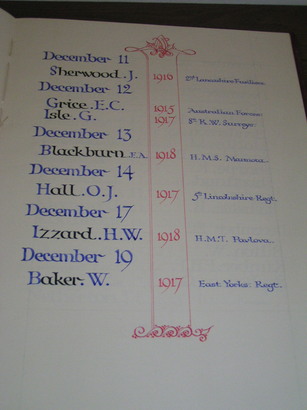 December 11
Sherwood. J. 1916 2nd Lancashire Fusiliers.
December 12
Grice. E.C. 1915 Australian Forces.
Isle. G. 1917 8th R.W. Surreys.
December 13
Blackburn. F.A. 1918 H.M.S.
December 14
Hall. O.J. 1917 5th Lincolnshire Regt.
December 17
Izzard. H.W. 1918 H.M.T. Pavlova.
December 19
Baker. W. 1917 East Yorks. Regt.